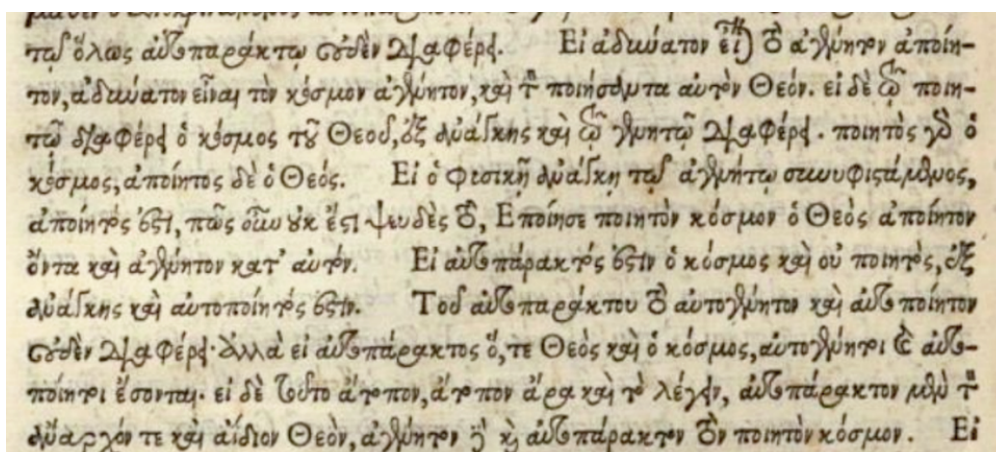 τῷ ὅλως αὐτοπαράκτῳ οὐδὲν διαφέρει. Εἰ ἀδύνατον εἶναι τὸ ἀγένητον ἀποίη-
τον, ἀδύνατον εἶναι τὸν κόσμον ἀγένητον, καὶ τὸν ποιήσαντα αὐτὸν Θεόν. εἰ δὲ τῷ ποιη-
τῷ διαφέρει ὁ κόσμος τοῦ Θεοῦ, ἐξ ἀνάγκης καὶ τῷ γενητῷ διαφέρει. ποιητὸς γὰρ ὁ
κόσμος, ἀποίητος δὲ ὁ Θεός. Εἰ ὁ φυσικῇ ἀνάγκῃ τῷ ἀγενήτῳ συνυφιστάμενος,
ἀποίητός ἐστι, πῶς οὖν οὐκ ἔστι ψευδὲς τὸ, Ἐποίησε ποιητὸν κόσμον ὁ Θεὸς ἀποίητον
ὄντα καὶ ἀγένητον κατ' αὐτόν. Εἰ αὐτοπάρακτός ἐστιν ὁ κόσμος καὶ οὐ ποιητός, ἐξ
ἀνάγκης καὶ αὐτοποίητός ἐστιν. Τοῦ αὐτοπαράκτου τὸ αὐτογένητον καὶ αὐτοποίητον
οὐδὲν διαφέρει· ἀλλὰ εἰ αὐτοπάρακτος ὅ, τε Θεὸς καὶ ὁ κόσμος, αὐτογένητοι καὶ αὐτο-
ποίητοι ἔσονται. εἰ δὲ τοῦτο ἄτοπον, ἄτοπον ἄρα καὶ τὸ λέγειν, αὐτοπάρακτον μὲν τὸν
ἄναρχόν τε καὶ ἀίδιον Θεόν, ἀγένητον δὲ καὶ αὐτοπάρακτον τὸν ποιητὸν κόσμον. Εἰ